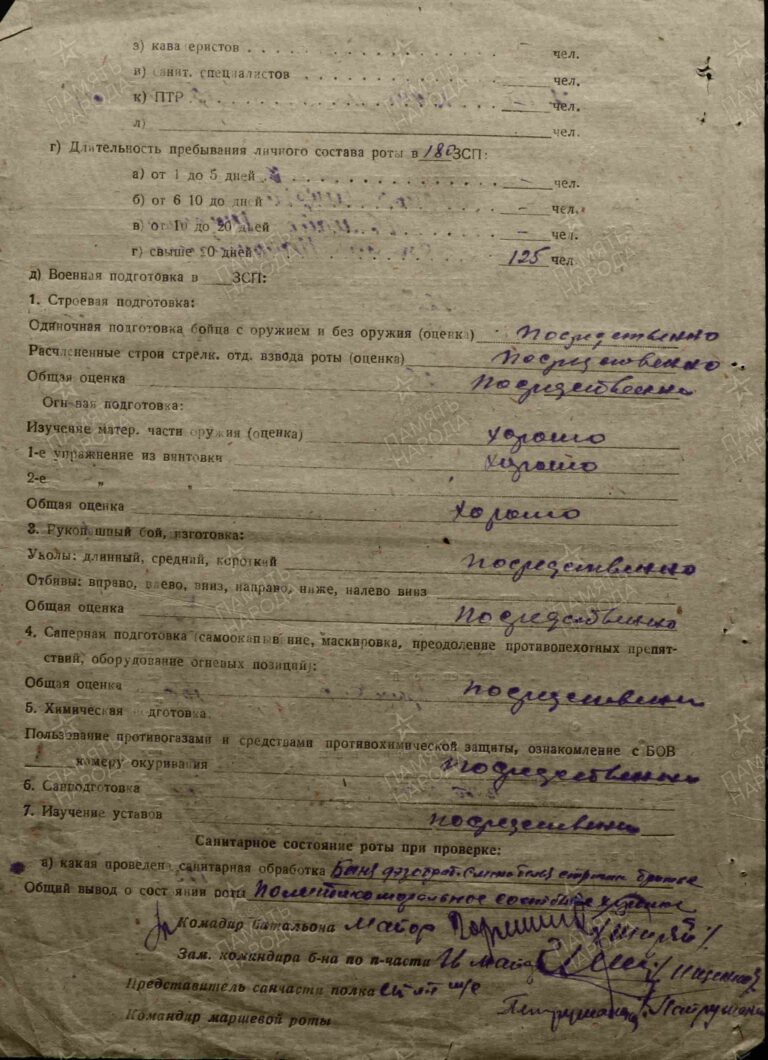 з) кава еристов — чел.
и) санит. специалистов чел.
к) ПТР — чел.
л) чел.
г) Длительность пребывания личного состава роты в ЗСП:
а) от 1 до 5 дней — чел.
б) от 6 10 до дней — чел.
в) от 10 до 20 дней — чел.
г) свыше 20 дней 125 чел
д) Военная подготовка в ЗСП:
1. Строевая подготовка:
Одиночная подготовка бойца с оружием и без оружия (оценка) Посредственно
Расчлененные строи стрелк. отд. взвода роты (оценка) Посредственно
Общая оценка Посредственно
Огневая подготовка:
Изучение матер. части оружия (оценка) хорошо
1-е упражнение из винтовки хорошо
2-е " "
Общая оценка хорошо
3. Рукопашный бой, изготовка:
Уколы: длинный, средний, короткий посредственно
Отбивы: вправо, влево, вниз, направо, ниже, налево вниз
Общая оценка посредственно
4. Саперная подготовка (самоокапыв ние, маскировка, преодоление противопехотных препят-
ствий, оборудование огневых позиций):
Общая оценка посредственно
5. Химическая дготовка.
Пользование противогазами и средствами противохимической защиты, ознакомление с БОВ
камеру окуривания посредственно
6. Санподготовка
7. Изучение уставов посредственно
Санитарное состояние роты при проверке:
а) какая проведен санитарная обработка Баня стрижка бритье
Общий вывод о сост янии роты Политикоморальное состояние хорошее
Комадир батальона Майор
Зам. командира б-на по п-части Майор
Представитель санчасти полка
Командир маршевой роты
ПАМЯТЬ НАРОДА